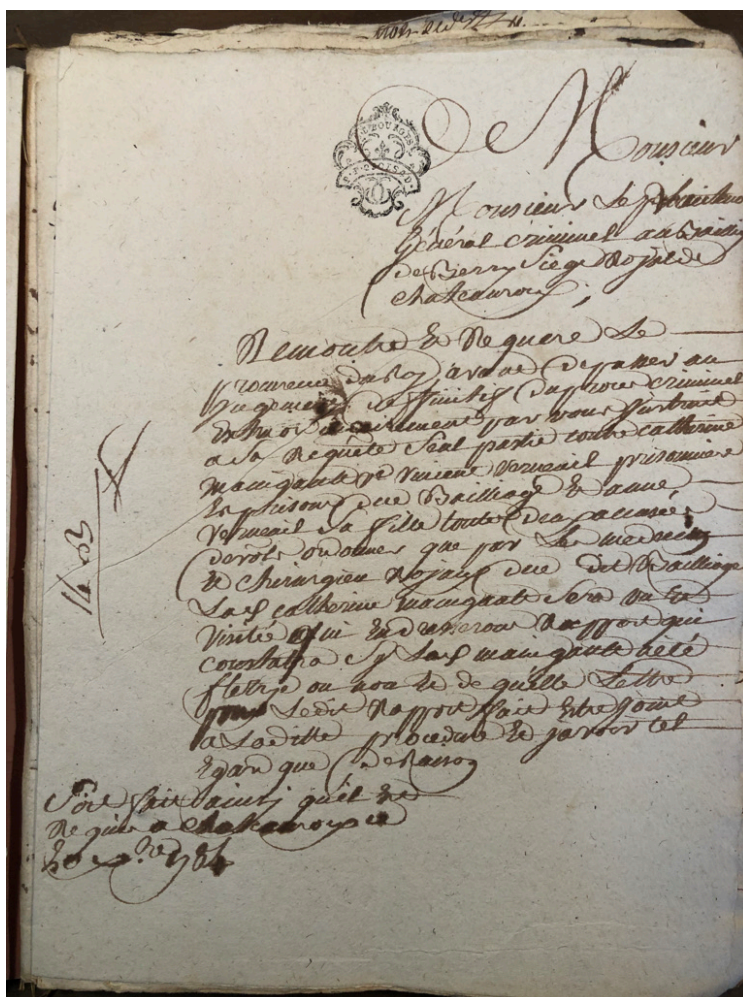 De Monsieur
Monsieur Le
Général criminel au Bailliage
de Berry Siege Royal de
Chateauroux ;
Remontre Et Requere Le
procureur du Roy avant De passer au
jugement Definitif Du proces criminel
Extraordinairement par vous Instruit
a Sa Requête Seul partie contre catherine
maingault Ve vincent verneuil prisonniere
Es prisons due Bailliage Et anne
verneuil Sa fille toutes Deux accusées
devoir ordonner que par Les medecins
Et chirurgien Royaux due dit Bailliage
Lad catherine maingault Sera vu Et
Visitée qui En dresseront Rapport qui
constatra Sy Lad maingault a été
fletrie ou non Et de quelle Lettre
pour Ledit Rapport fait Estre joint
a Laditte procedure Et y avoir tel
Egard que De Raison
Soit fait ainsi qu'il Est
Requis a chateauroux ce
1784